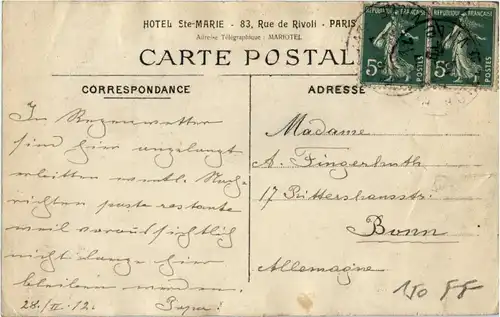 HOTEL Ste-MARIE - 83, Rue de Rivoli - PARIS
Adresse Télégraphique : MARIOTEL
CARTE POSTAL
CORRESPONDANCE
ADRESSE
REPUBLIQUE FRANÇAISE
5c
POSTES
REPUBLIQUE FRANÇAISE
5c
POSTES
Im Regenwetter
sind hier angelangt
erbitten eventl. Nach-
richten poste restante
weil voraussichtlich
nicht lange hier
bleiben werden.
28./II.12. Papa!
Madame
A. Fingerhuth
17 Rittershausstr:
Bonn
Allemagne
150